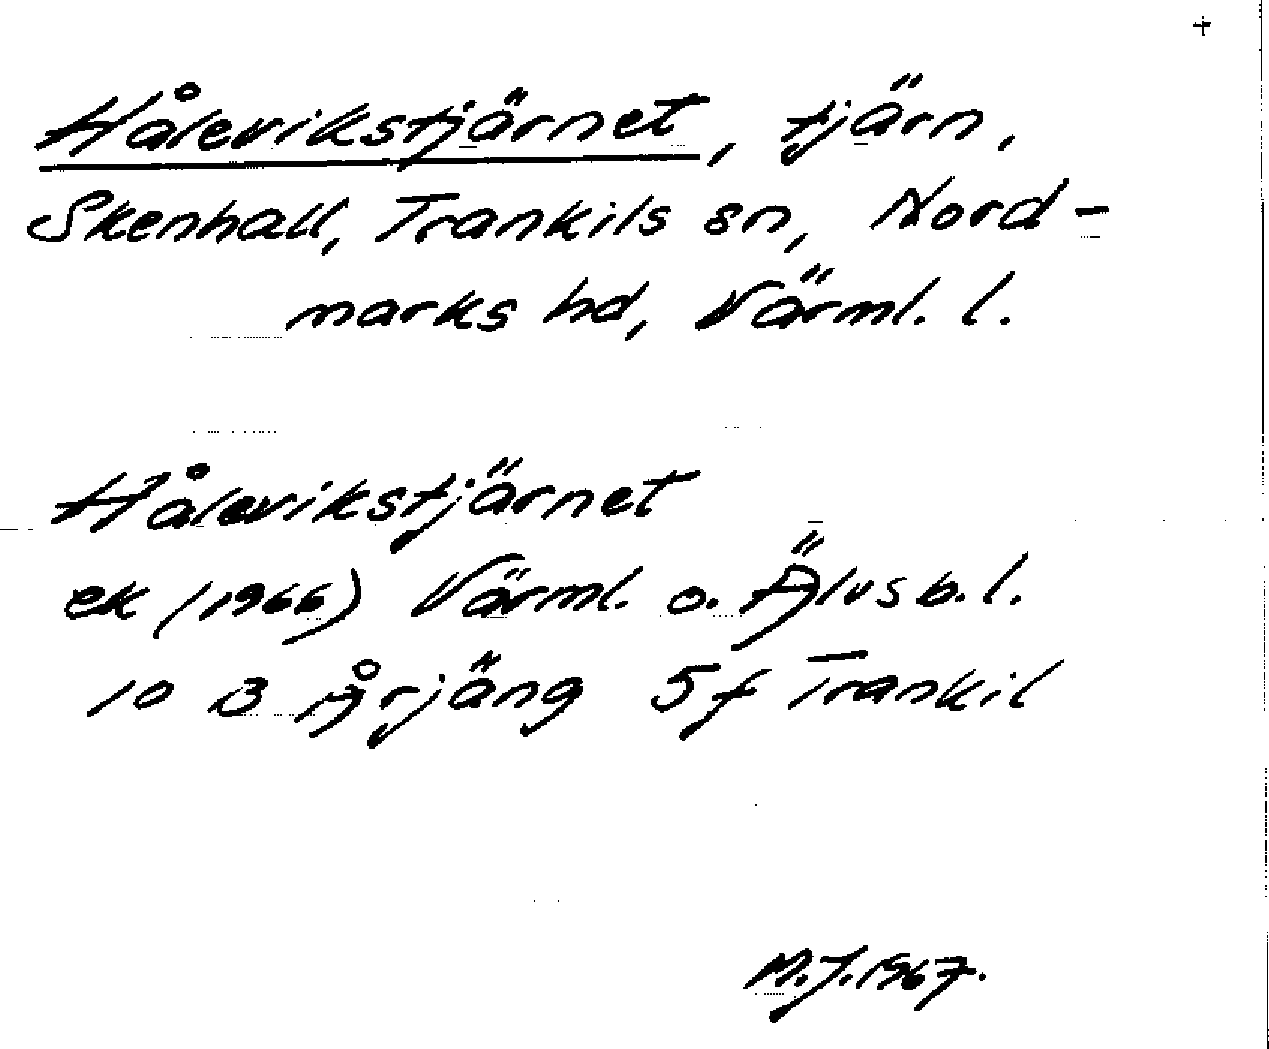 +
Hålevikstjärnet, tjärn,
Skenhall, Trankils sn, Nord-
marks hd, Värml. l.
Hålevikstjärnet
ek (1966) Värml. o. Älvsb. l.
10 B Årjäng 5f Trankil
M.J. 1967.